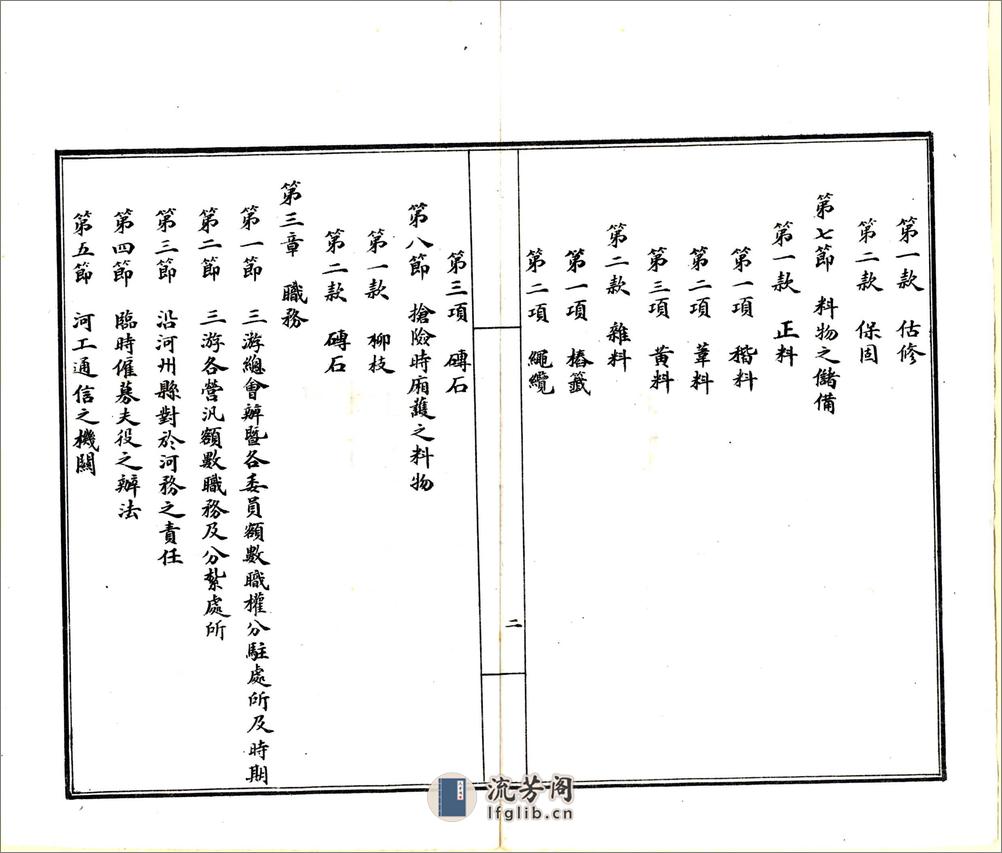 第一款　估修
第二款　保固
第七節　料物之儲備
第一款　正料
第一項　稭料
第二項　葦料
第三項　黃料
第二款　雜料
第一項　樁籤
第二項　繩纜
二
第三項　磚石
第八節　搶險時廂護之料物
第一款　柳枝
第二款　磚石
第三章　職務
第一節　三游總會辦暨各委員額數職權分駐處所及時期
第二節　三游各營汛額數職務及分紮處所
第三節　沿河州縣對於河務之責任
第四節　臨時僱募夫役之辦法
第五節　河工通信之機關
流芳阁
lfglib.cn